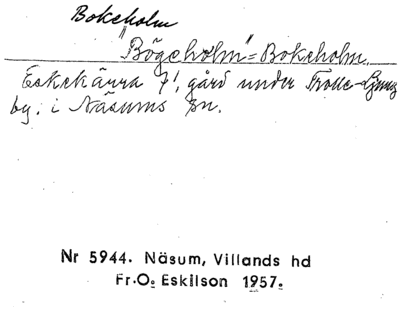 Bokeholm
"Bögeholm" = Bokeholm.
Eskekärra 7', gård under Trolle-Ljung
by. i Näsums sn.
Nr 5944. Näsum, Villands hd
Fr.O. Eskilson 1957.